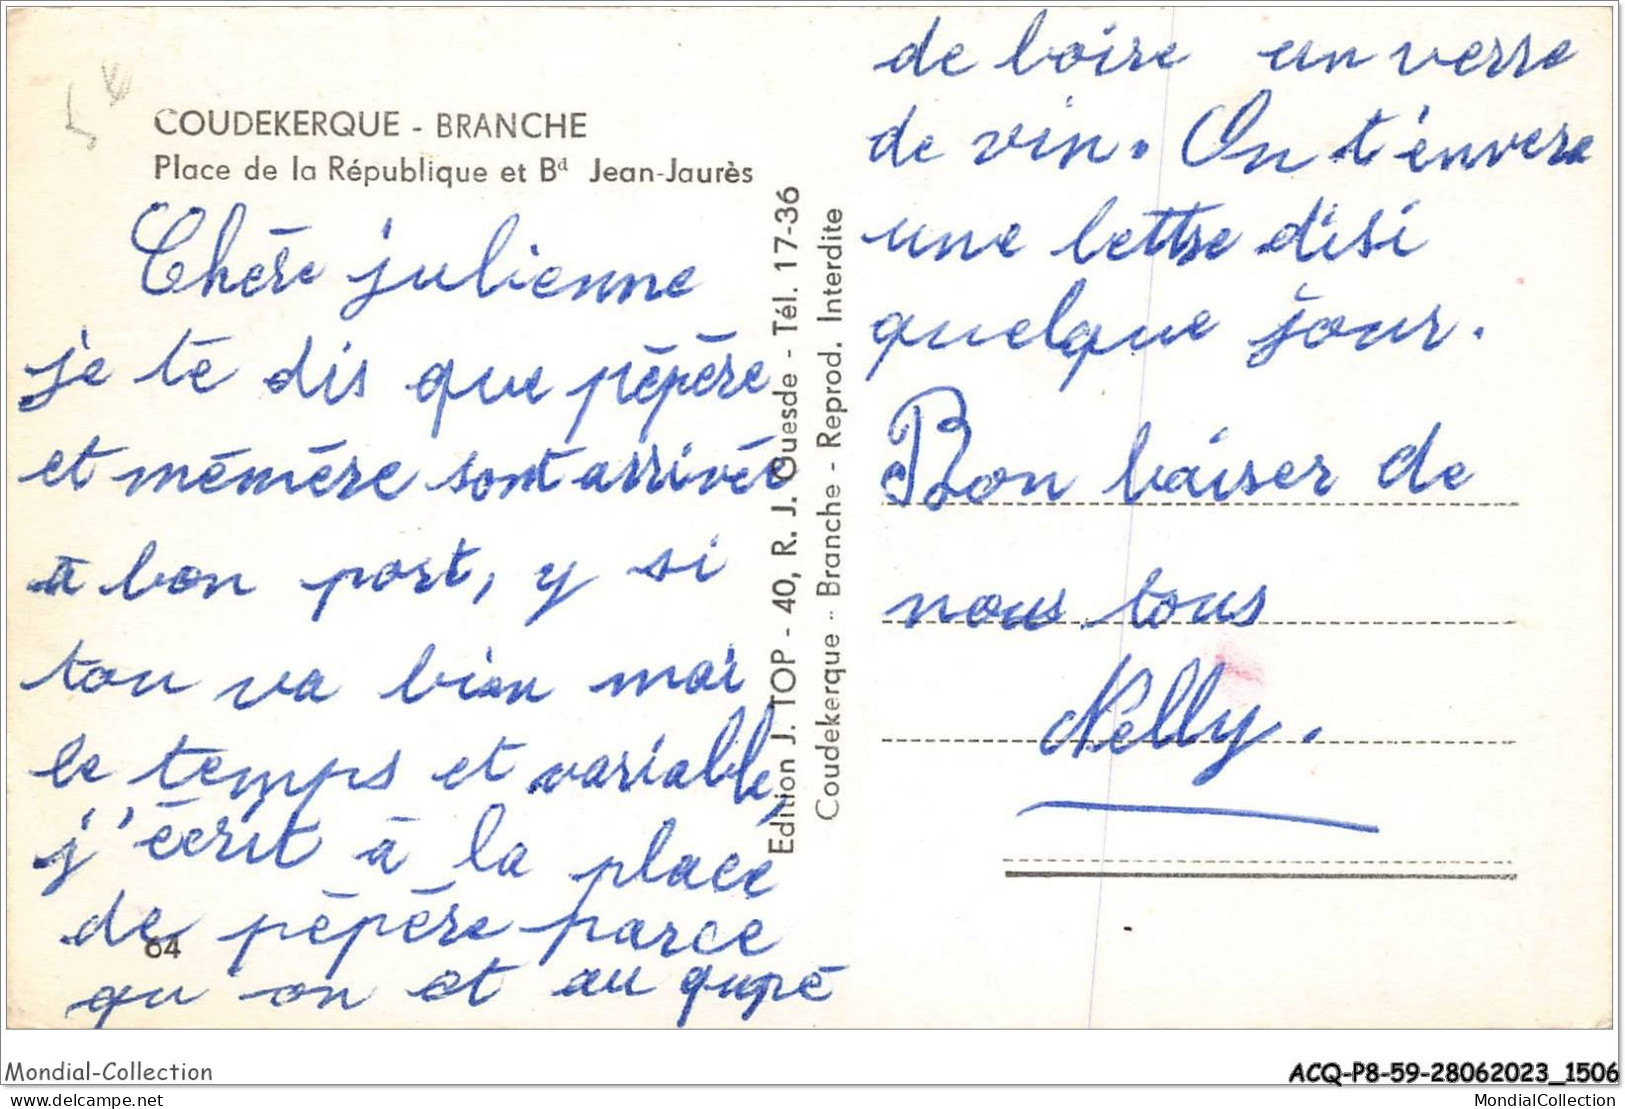 COUDEKERQUE - BRANCHE
Place de la République et Bd Jean-Jaurès
Chére julienne
je te dis que pépére
et mémére sont arrivée
a bon port, y si
tou va bien mai
le temps et variable,
j'écrit à la place
de pépére parce
qu on et au qupé
64
Edition J. TOP - 40, R. J. Guesde - Tél. 17-36
Coudekerque - Branche - Reprod. Interdite
de boire un verre
de vin. On t'envere
une lettre d'isi
quelque jour.
Bon baiser de
nous tous
Nelly.
Mondial-Collection
ACQ-P8-59-28062023_1506
delcampe.net
MondialCollection